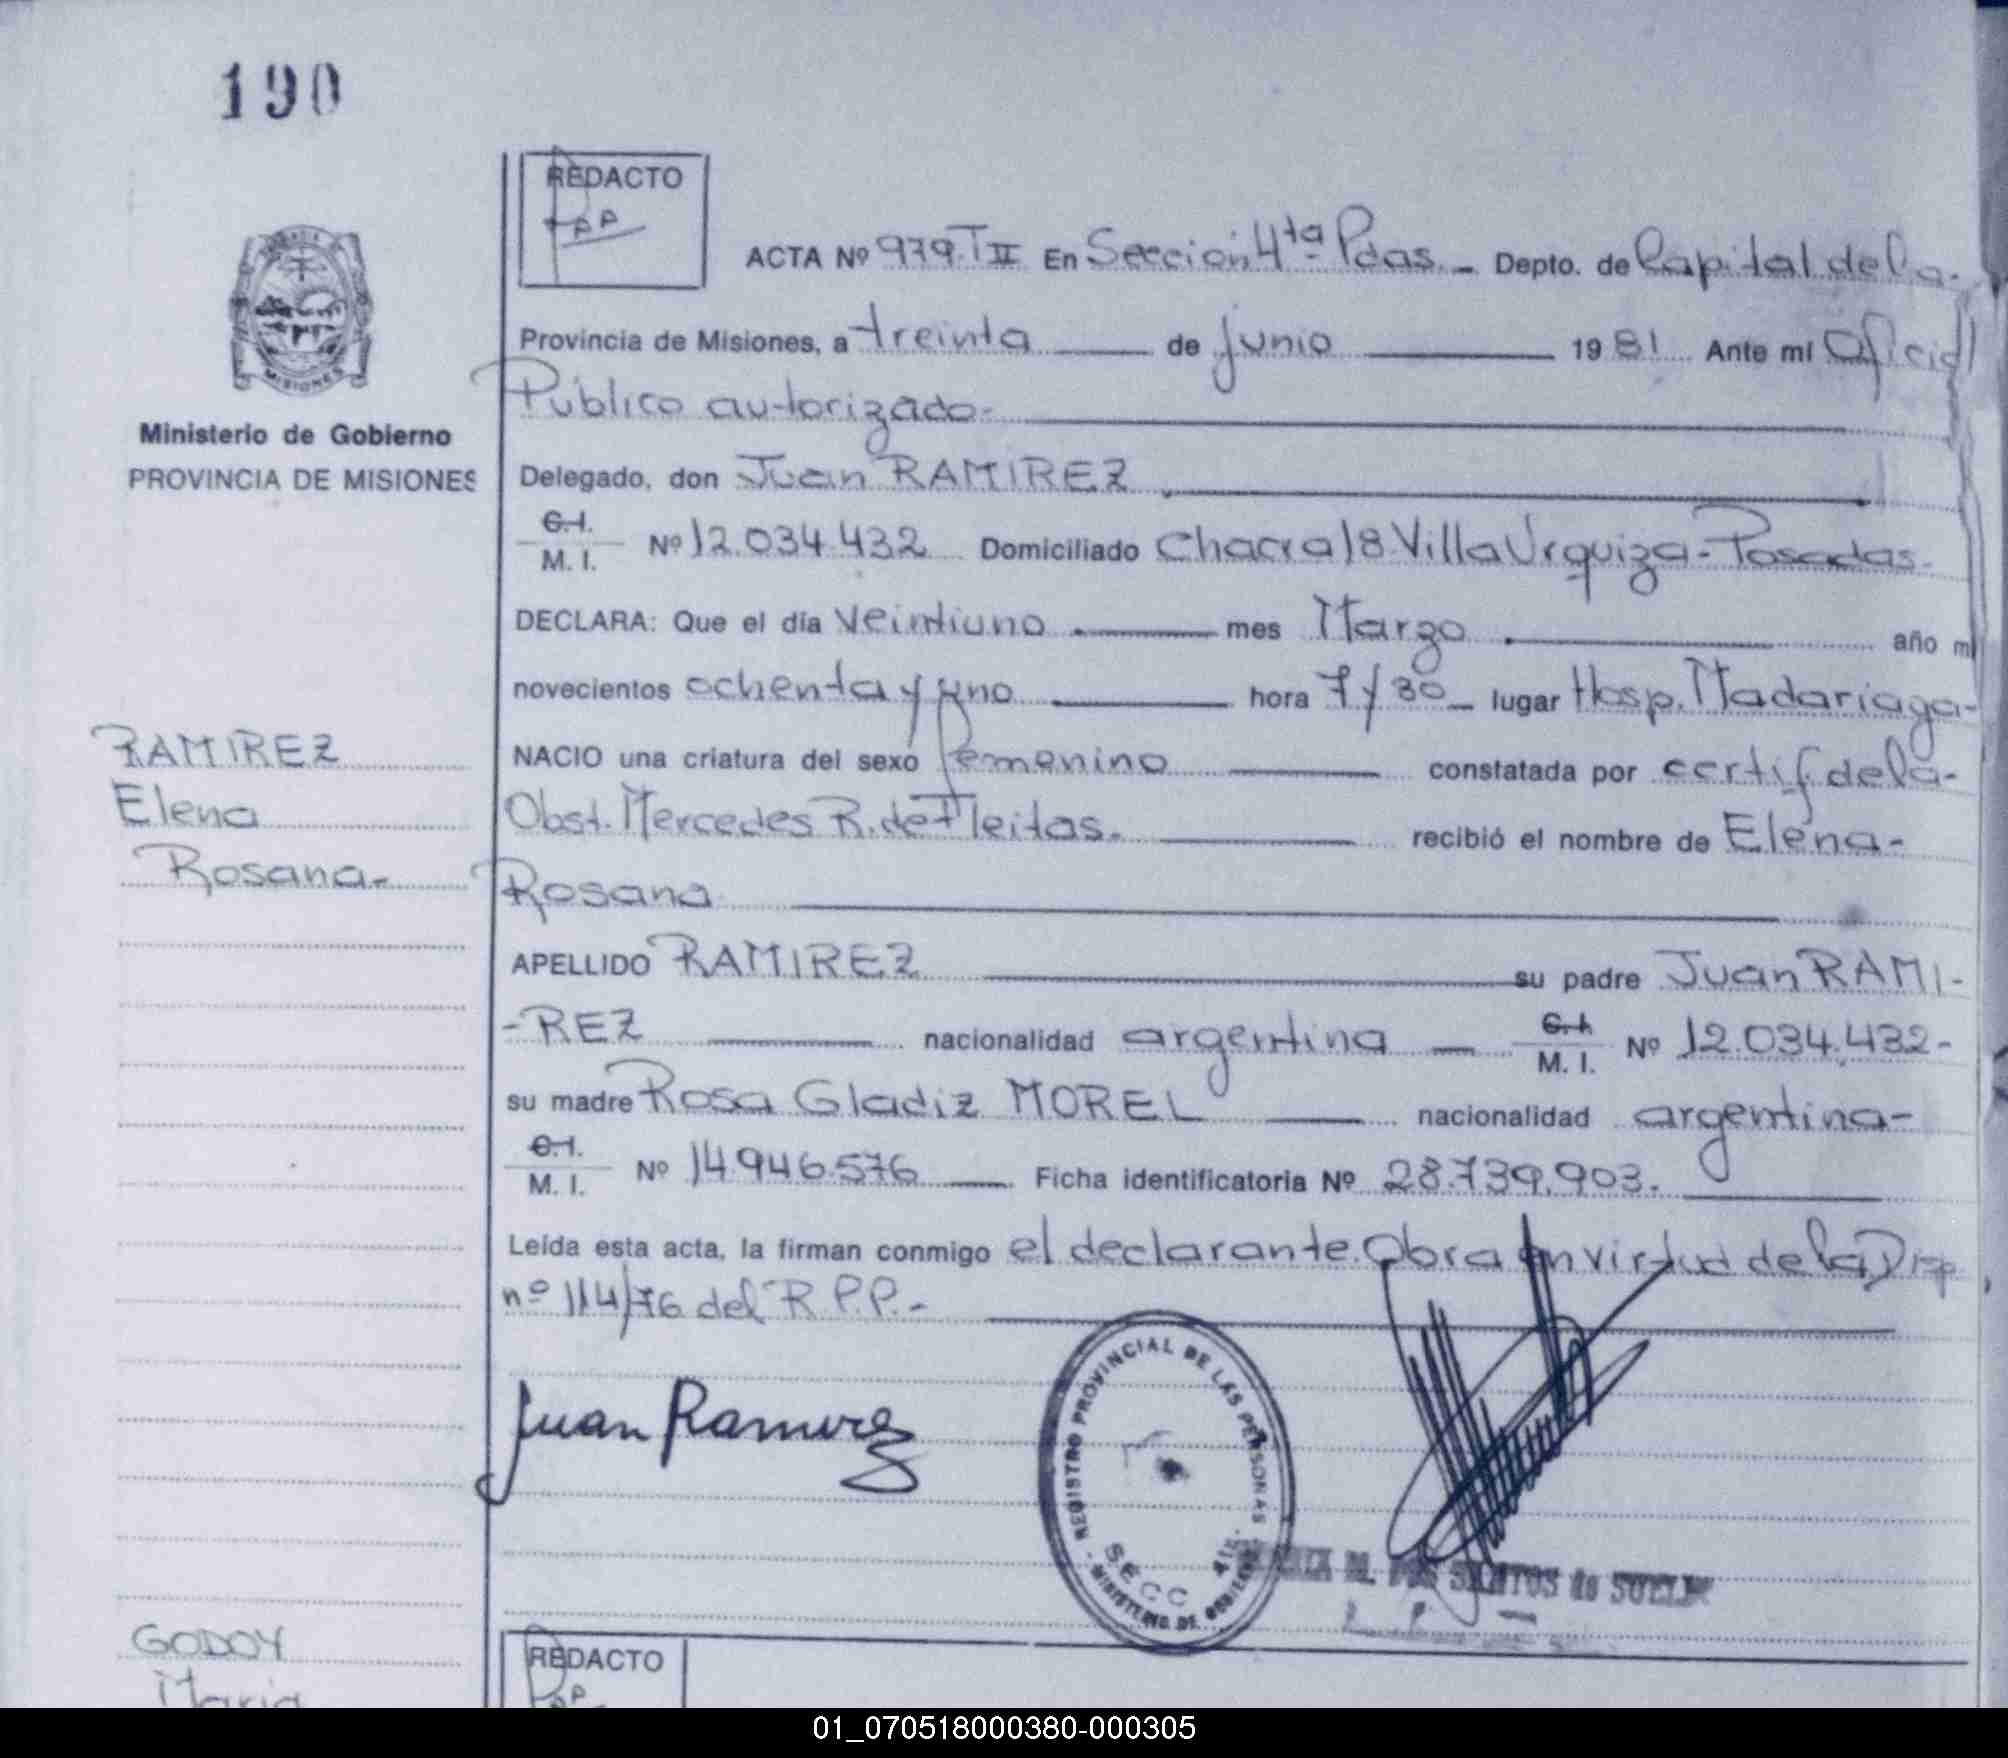 190
REDACTO
ACTA Nº 979.T II En Sección 4ta Pdas. - Depto. de Capital de la-
Provincia de Misiones, a treinta de junio 1981 Ante mí Oficial
Público autorizado-
Ministerio de Gobierno
PROVINCIA DE MISIONES
Delegado, don Juan RAMIREZ
C.I.
M. I. Nº 12.034.432 Domiciliado Chacra 18 Villa Urquiza - Posadas-
DECLARA: Que el día veintiuno mes Marzo año mi
novecientos ochenta y uno hora 7 y 30 - lugar Hosp. Madariaga-
NACIO una criatura del sexo femenino constatada por certif de la-
Obst. Mercedes R. de Fleitas. recibió el nombre de Elena-
Rosana
RAMIREZ
Elena
Rosana-
APELLIDO RAMIREZ su padre Juan RAMI-
-REZ nacionalidad argentina C.I.
M. I. Nº 12.034.432-
su madre Rosa Gladiz MOREL nacionalidad argentina-
C.I.
M. I. Nº 14.946.576 Ficha identificatoria Nº 28.739.903.
Leída esta acta, la firman conmigo el declarante. Obra en virtud de la Disp
nº 114/76 del R.P.P.-
Juan Ramirez
REGISTRO PROVINCIAL DE LAS PERSONAS
SECC
MINISTERIO DE GOBIERNO
M. DOS SANTOS de
GODOY
Maria
REDACTO
01_070518000380-000305